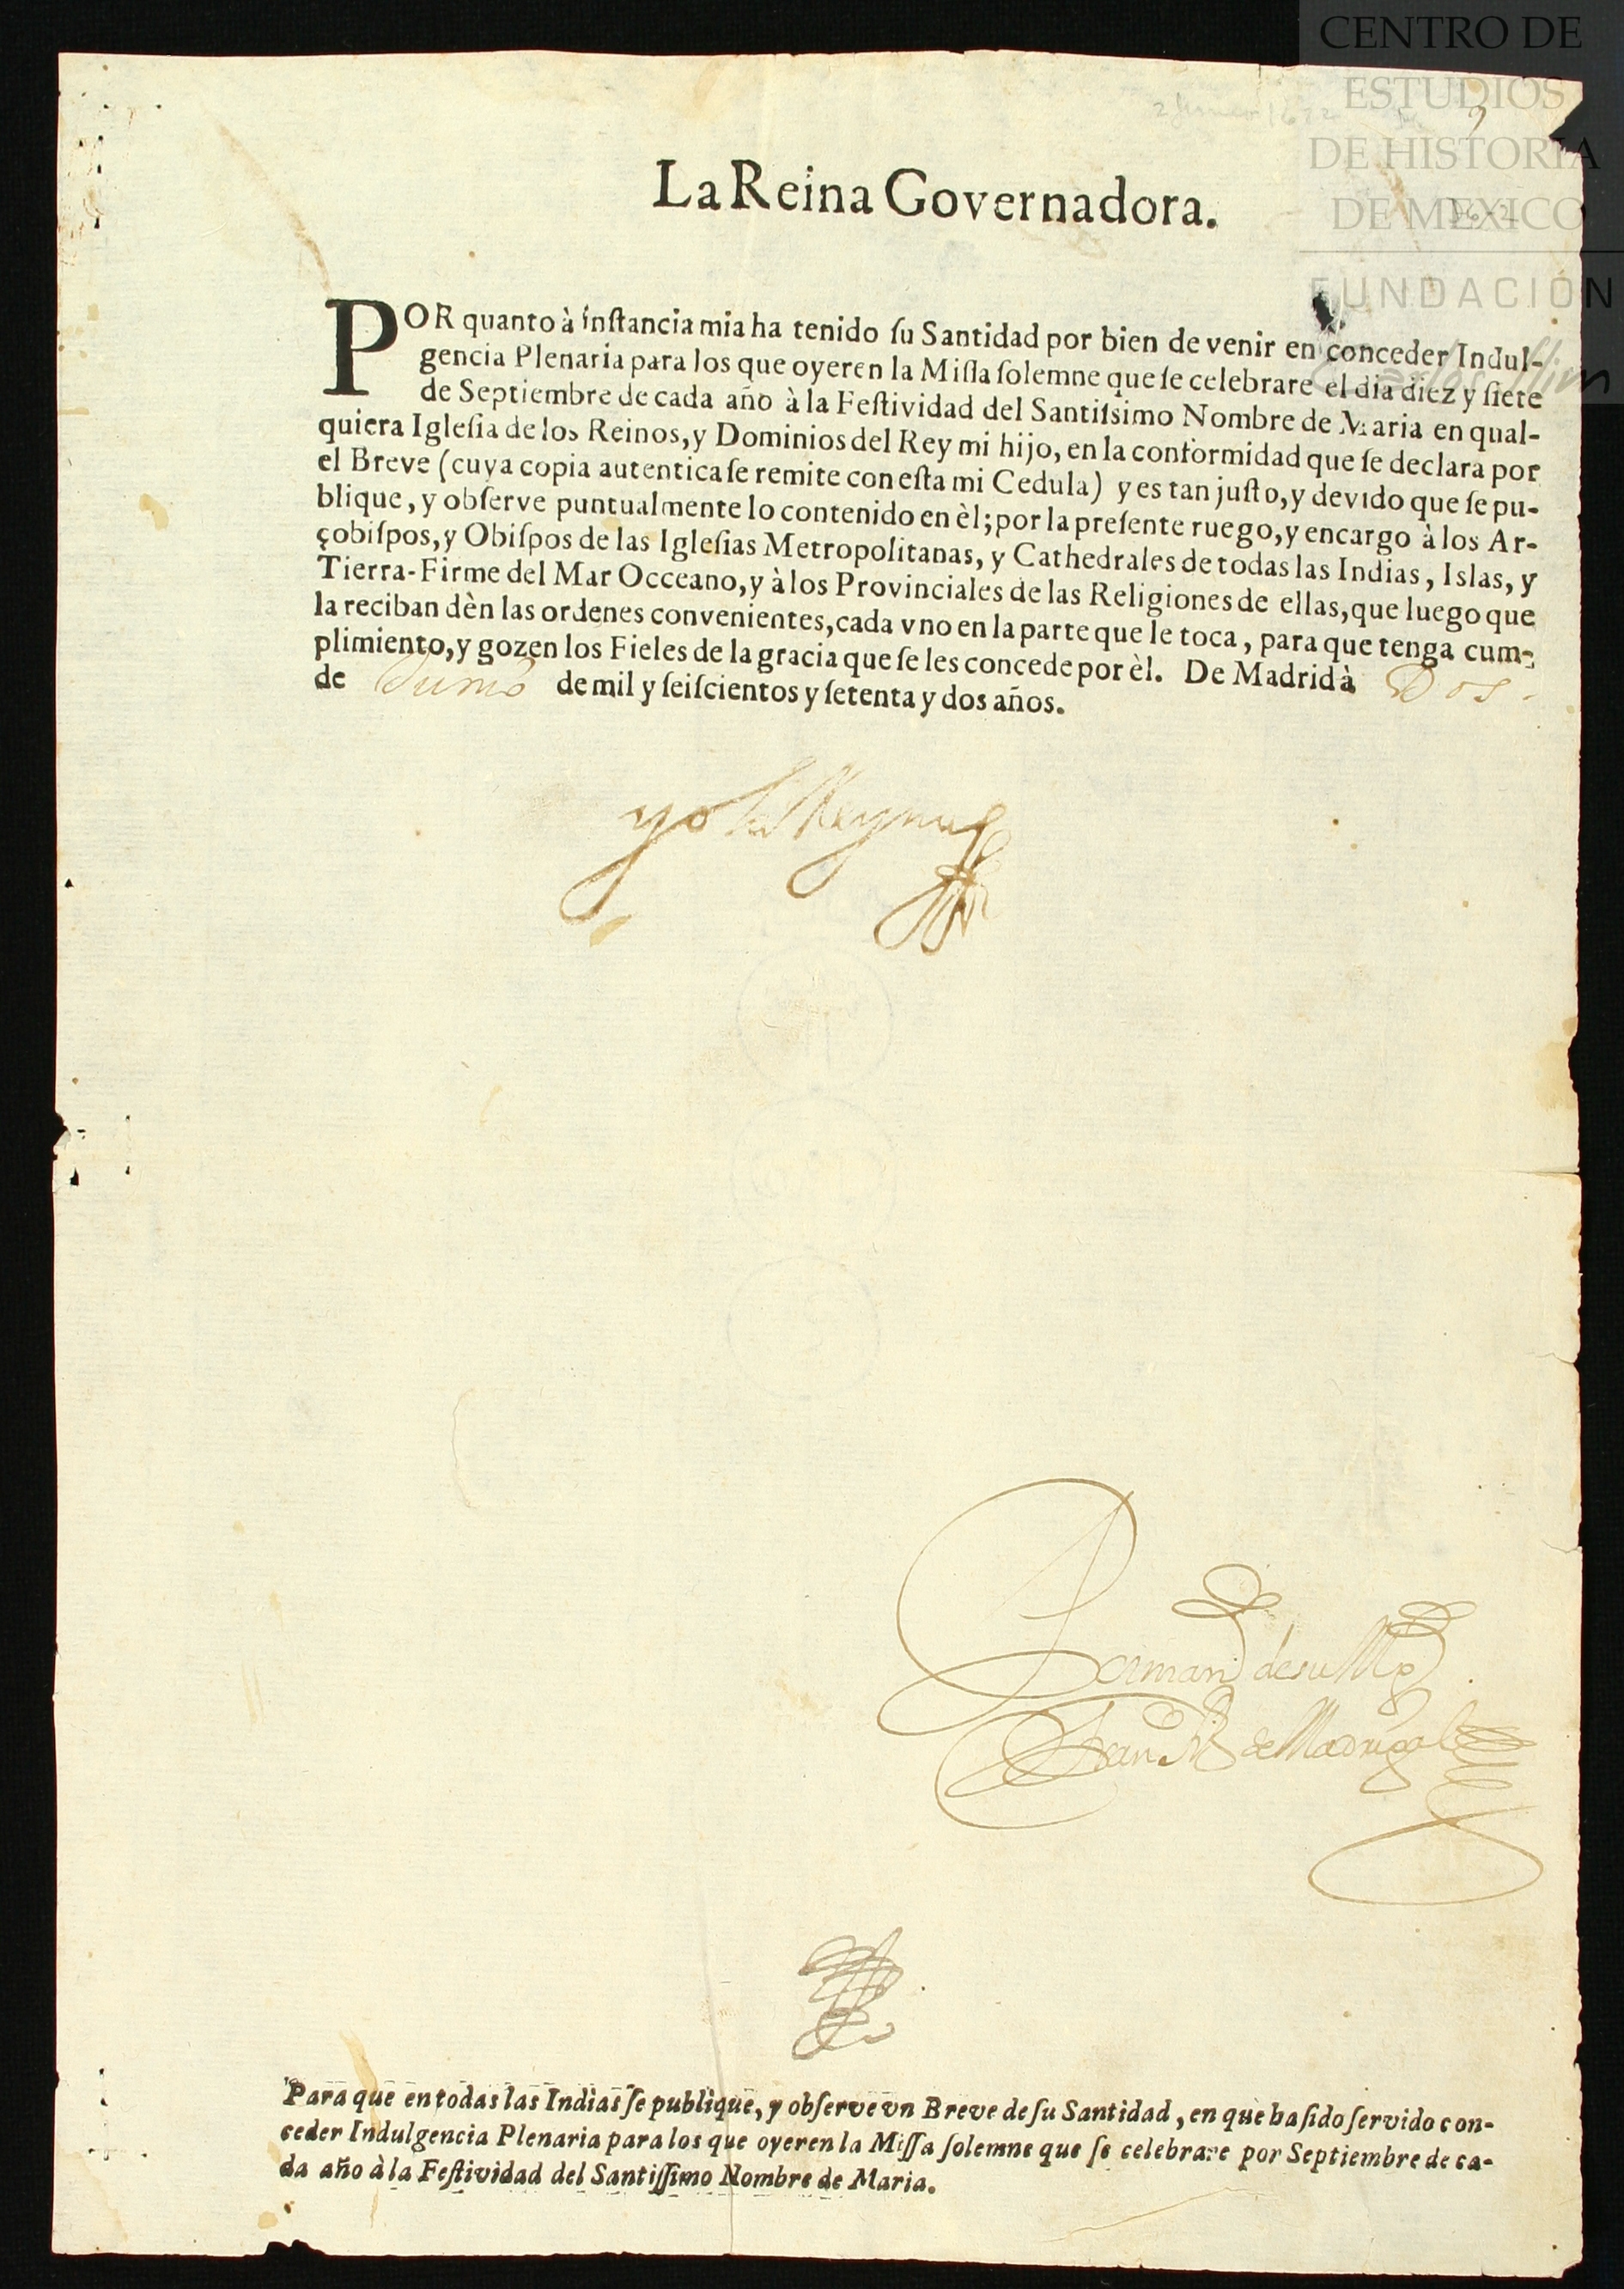 CENTRO DE
ESTUDIOS
DE HISTORIA
DE MEXICO
FUNDACIÓN
Carlos Slim
2 Junio 1672
La Reina Governadora.
POR quanto à inſtancia mia ha tenido ſu Santidad por bien de venir en conceder Indul-
gencia Plenaria para los que oyeren la Miſſa ſolemne que ſe celebrare el dia diez y ſiete
de Septiembre de cada año à la Feſtividad del Santiſsimo Nombre de Maria en qual-
quiera Igleſia de los Reinos, y Dominios del Rey mi hijo, en la conformidad que ſe declara por
el Breve (cuya copia autentica ſe remite con eſta mi Cedula) y es tan juſto, y devido que ſe pu-
blique, y obſerve puntualmente lo contenido en èl; por la preſente ruego, y encargo à los Ar-
çobiſpos, y Obiſpos de las Igleſias Metropolitanas, y Cathedrales de todas las Indias, Islas, y
Tierra-Firme del Mar Occeano, y à los Provinciales de las Religiones de ellas, que luego que
la reciban dèn las ordenes convenientes, cada vno en la parte que le toca, para que tenga cum-
plimiento, y gozen los Fieles de la gracia que ſe les concede por èl. De Madrid à Dos
de Junio de mil y ſeiſcientos y ſetenta y dos años.
yo la Reyna
Por man.do de su Mg.d
Fran.co de Madrigal
Para que en todas las Indias ſe publique, y obſerve vn Breve de ſu Santidad, en que ha ſido ſervido con-
ceder Indulgencia Plenaria para los que oyeren la Miſſa ſolemne que ſe celebrare por Septiembre de ca-
da año à la Feſtividad del Santiſſimo Nombre de Maria.